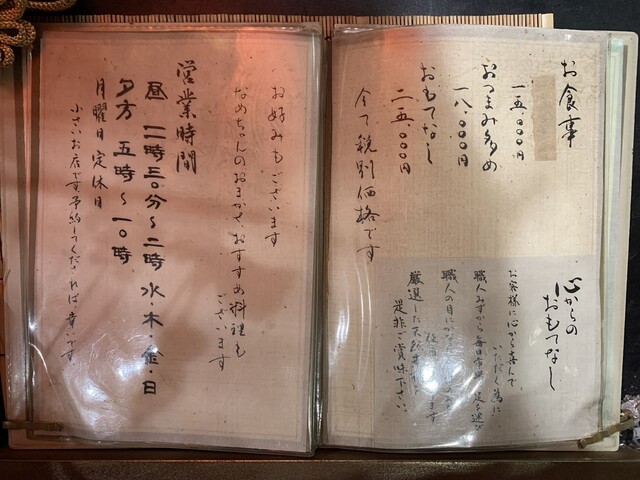 お食事
一五、〇〇〇円
おつまみ多め
一八、〇〇〇円
おもてなし
二五、〇〇〇円
全て税別価格です
心からの
おもてなし
お客様に心から喜んで
いただく為に
職人みずから毎日市場に足を運び
職人の目にかなった
ます
厳選した天然
是非ご賞味下さい。
お好みもございます
なめちゃんのおまかせ、おすすめ料理も
ございます
営業時間
昼 一一時三〇分〜二時 水・木・金・日
夕方 五時〜一〇時
月曜日 定休日
小さいお店です。予約してくだされば、幸いです。